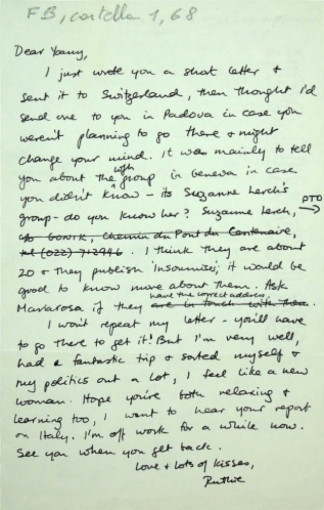 FB, cartella 1, 68
Dear Yoany,
I just wrote you a short letter +
sent it to Switzerland, then thought I'd
send one to you in Padova in case you
weren't planning to go there + might
change your mind. It was mainly to tell
you about the with group in Geneva in case
you didn't know - its Suzanne Lerch's
group - do you know her? Suzanne Lerch, PTO →
c/o Gowik, Chemin du Pont du Centenaire,
tel (022) 712996. I think they are about
20 + they publish 'Insoumise', it would be
good to know more about them. Ask
Mariarosa if they have the correct address are in touch with them.
I won't repeat my letter - you'll have
to go there to get it! But I'm very well,
had a fantastic trip + sorted myself +
my politics out a lot, I feel like a new
woman. Hope you're both relaxing +
learning too, I want to hear your report
on Italy. I'm off work for a while now.
See you when you get back.
Love + lots of kisses,
Ruthie